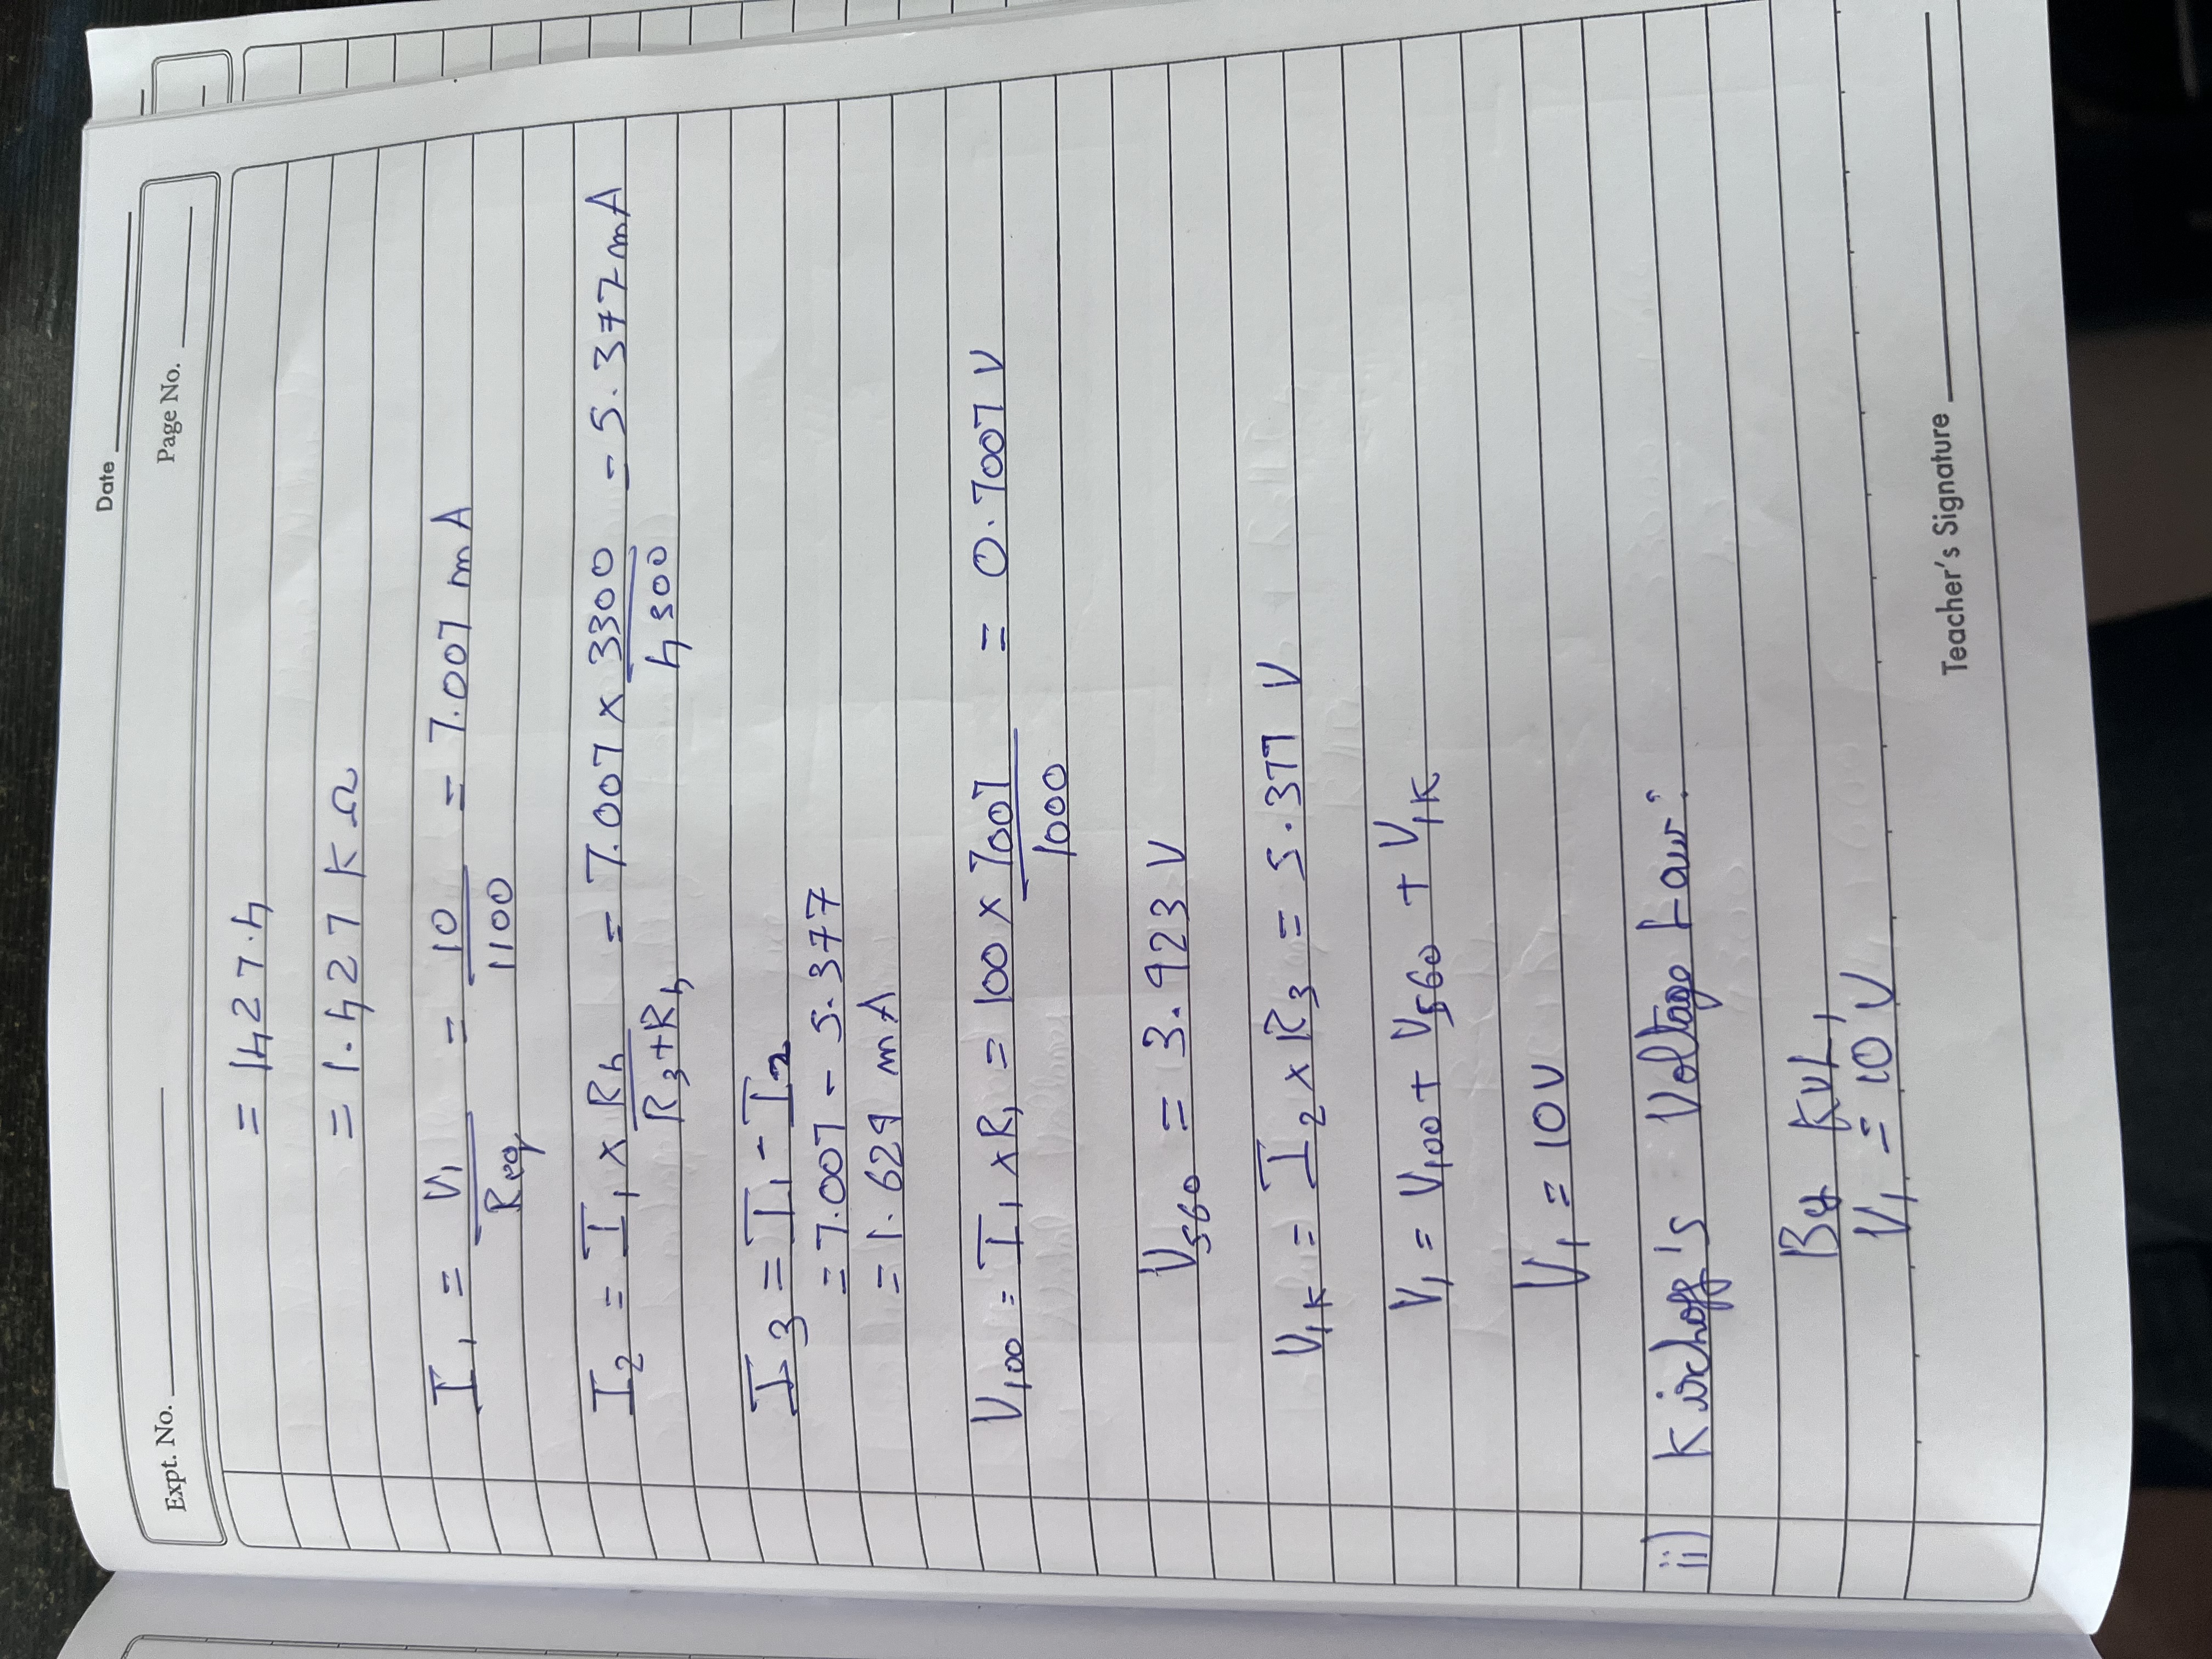 Date
Expt. No.
Page No.
= 1427.4
= 1.427 KΩ
I1 = V1 / Req = 10 / 1100 = 7.007 mA
I2 = I1 x R4 / R3+R4 = 7.007 x 3300 / 4300 = 5.377 mA
I3 = I1 - I2
= 7.007 - 5.377
= 1.629 mA
V100 = I1 x R1 = 100 x 7007 / 1000 = 0.7007 V
V560 = 3.923 V
V1K = I2 x R3 = 5.377 V
V1 = V100 + V560 + V1K
V1 = 10V
ii) Kirchoff's Voltage Law:
By KVL,
V1 = 10 V
Teacher's Signature